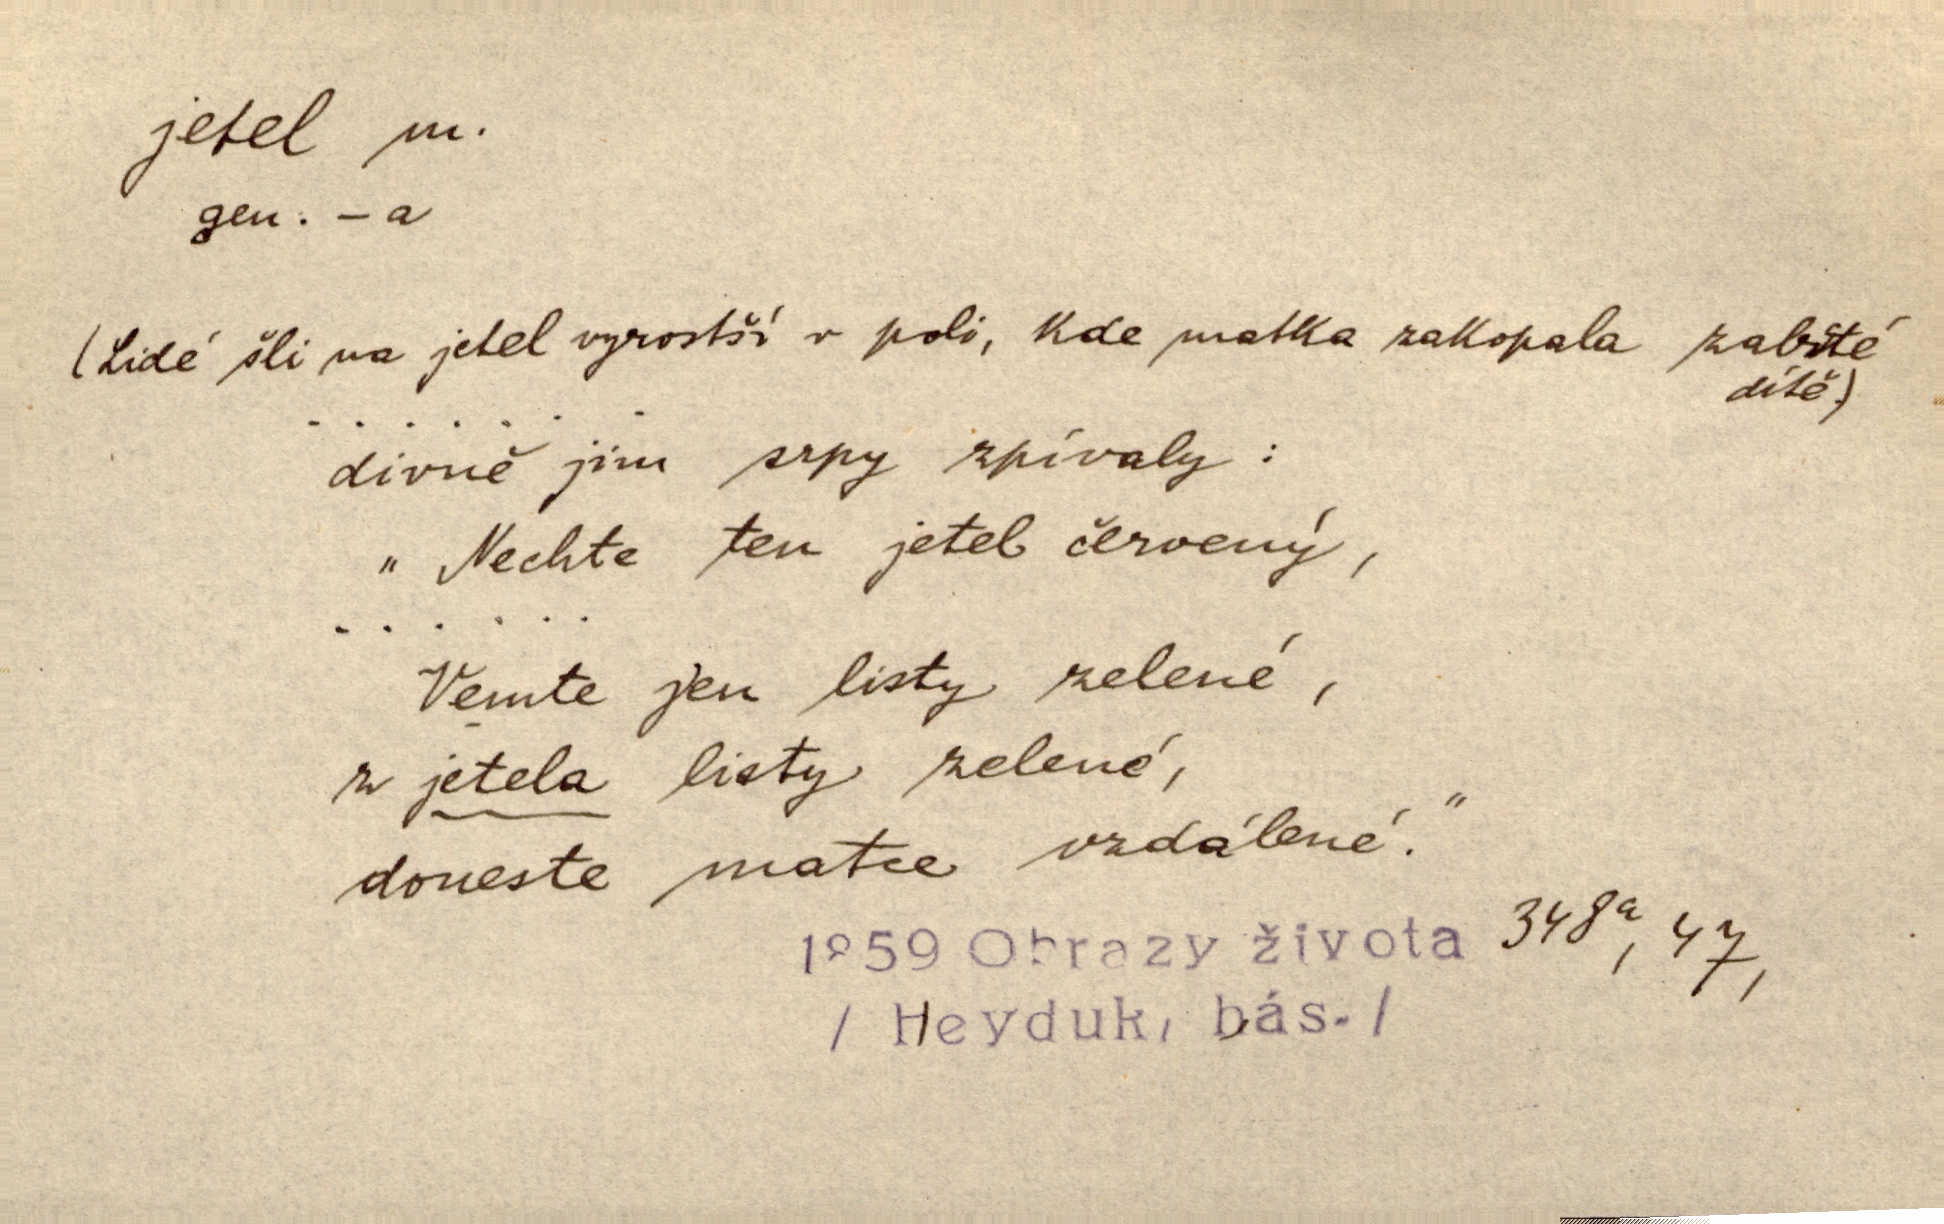 jetel m.
gen. – a
(Lidé šli na jetel vyrostší v poli, kde matka zakopala zabité
dítě.)
. . . . . . .
divně jim srpy zpívaly :
„ Nechte ten jetel červený,
. . . . . .
Vemte jen listy zelené,
z jetela listy zelené,
doneste matce vzdálené.“
1859 Obrazy života 348a, 47,
/ Heyduk, bás. /